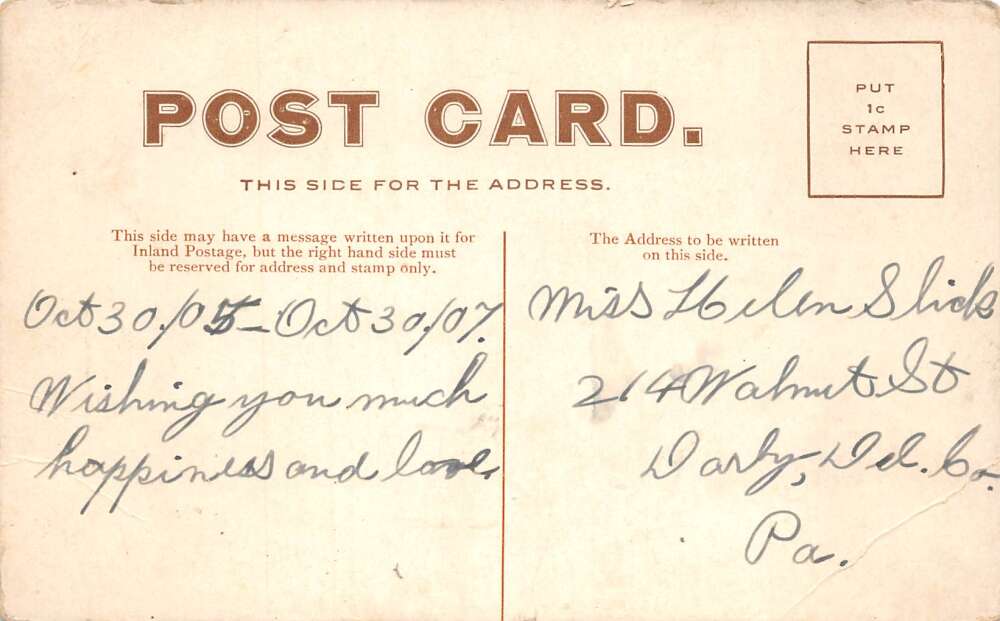 POST CARD.
THIS SIDE FOR THE ADDRESS.
PUT
1c
STAMP
HERE
This side may have a message written upon it for
Inland Postage, but the right hand side must
be reserved for address and stamp only.
Oct 30./05 - Oct 30./07.
Wishing you much
happiness and love.
The Address to be written
on this side.
Miss Helen Slick
214 Walnut St
Darby, Del. Co.
Pa.